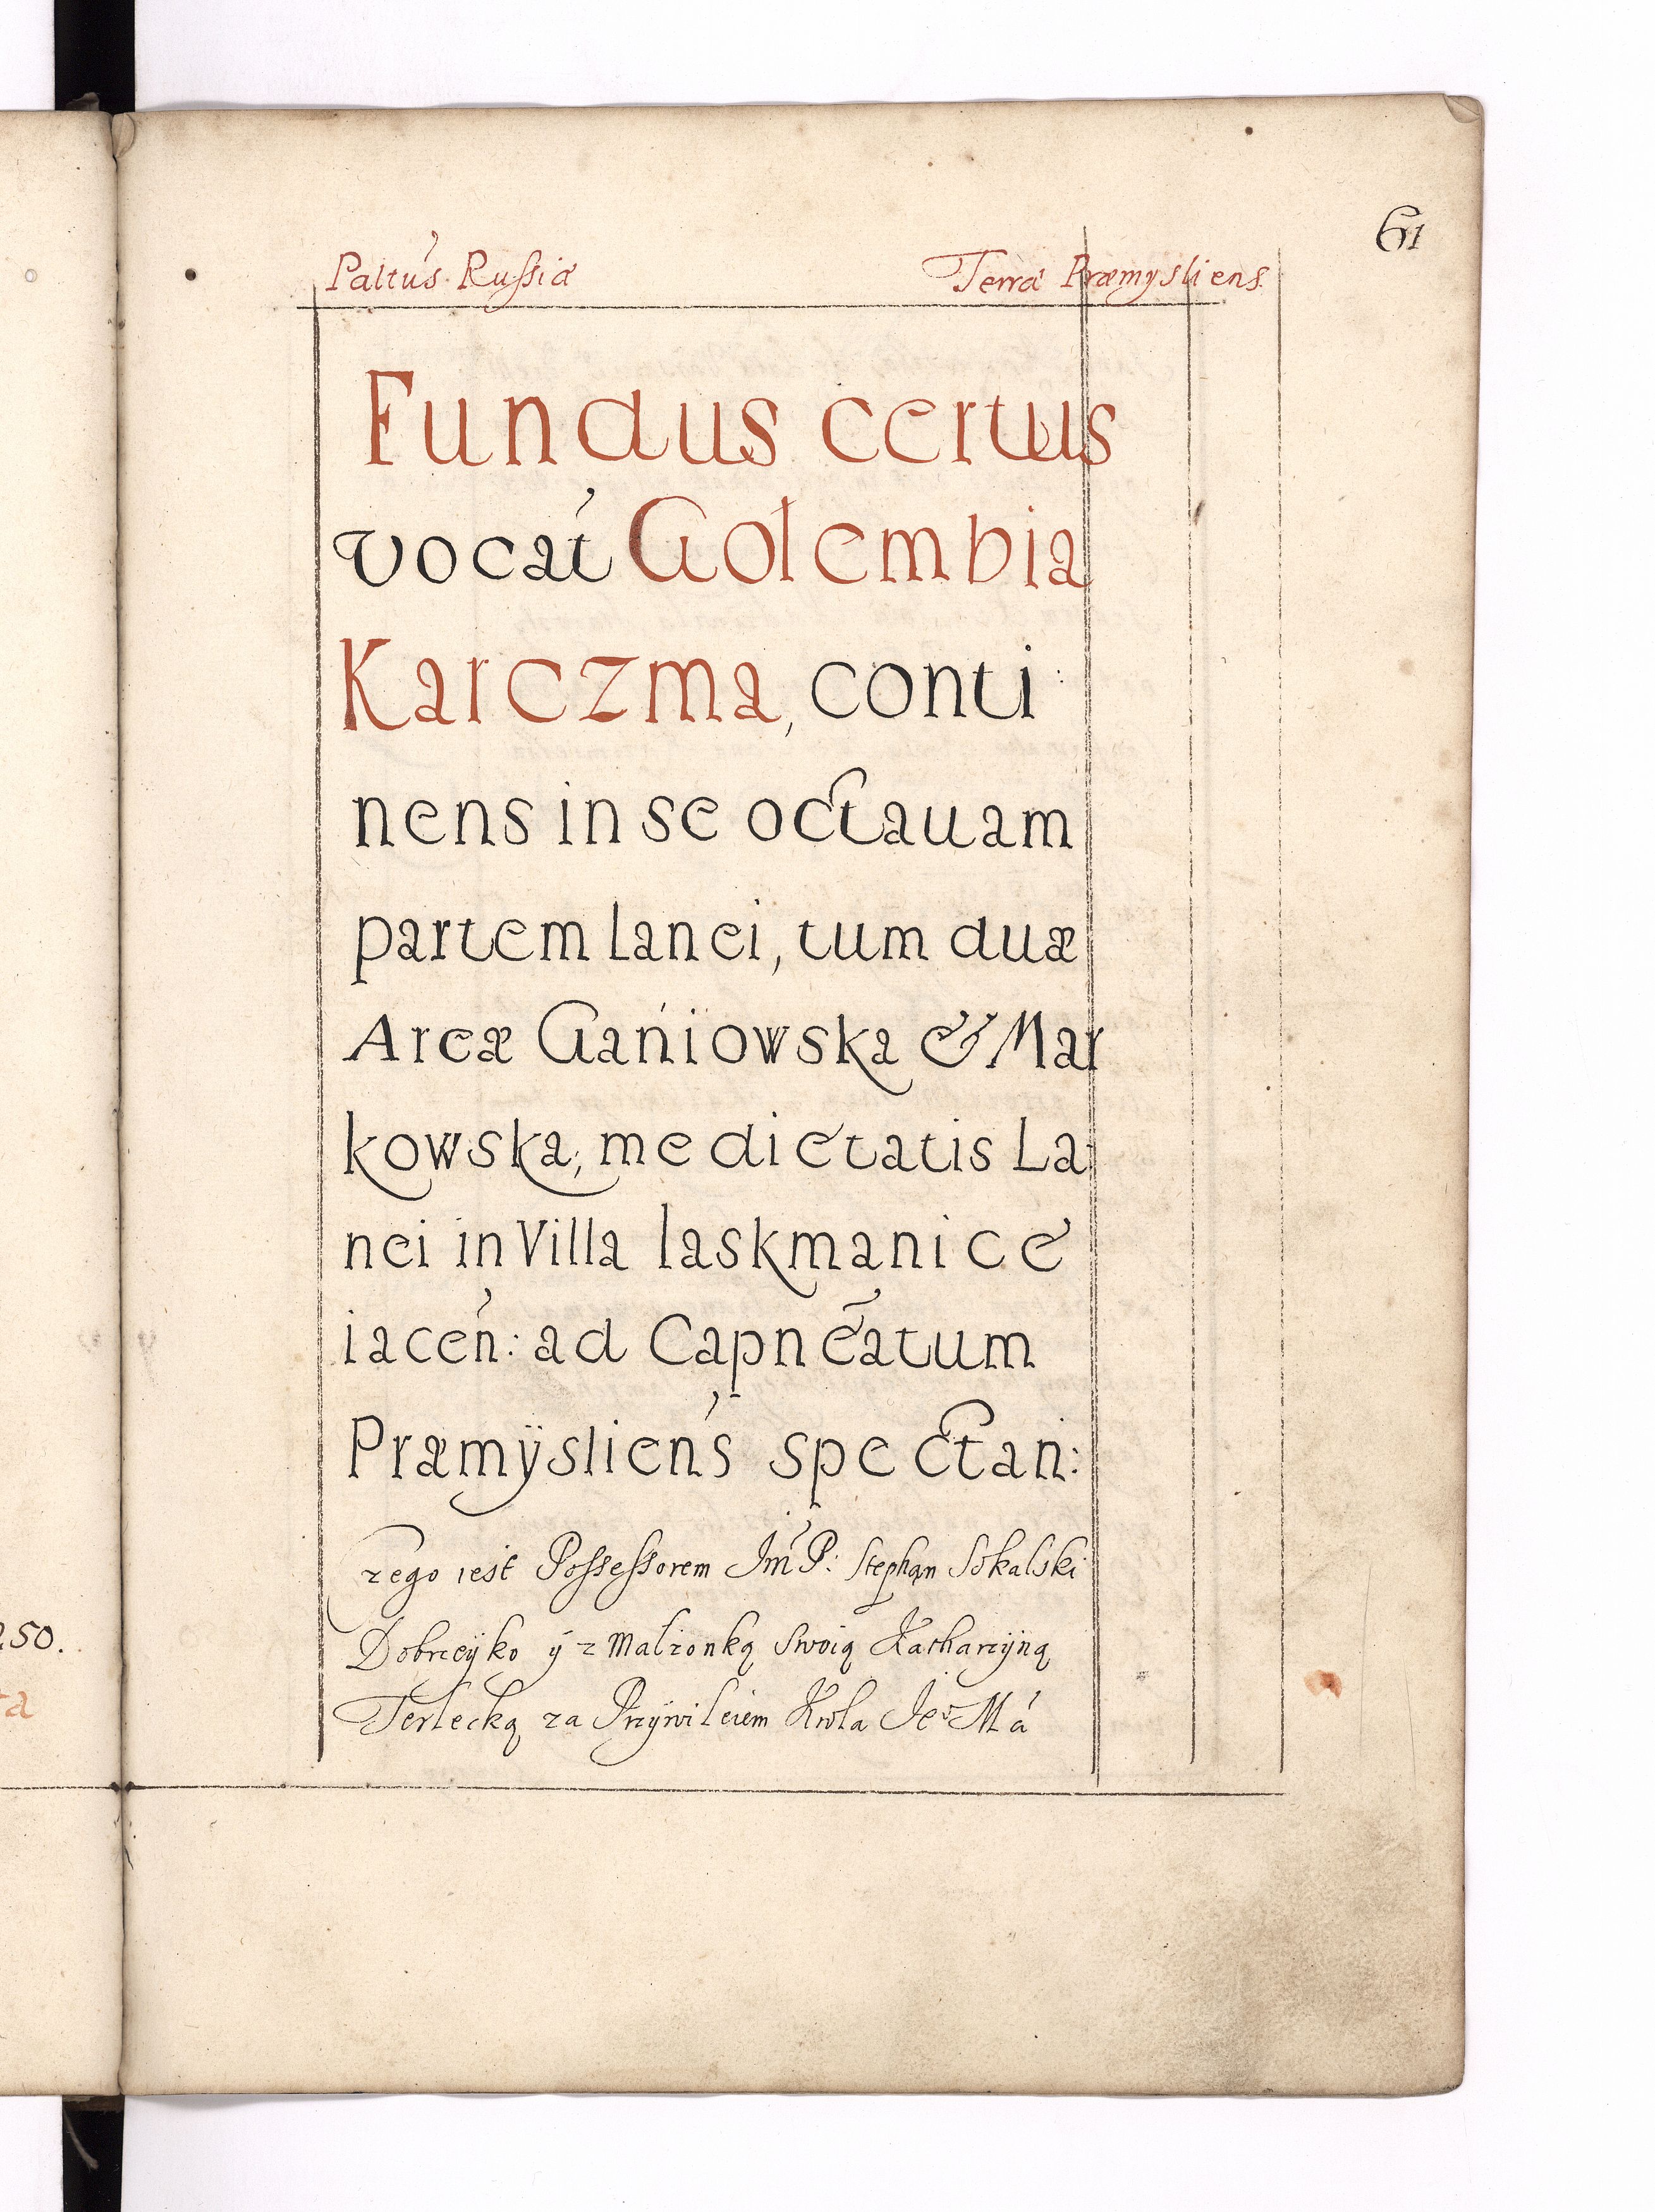 61
Paltus Russiæ Terræ Præmysliens.
Fundus certus
vocat Golembia
Karczma, conti:
nens in se octauam
partem lanei, tum duæ
Areæ Ganiowska & Mar
kowska, medietatis La:
nei in Villa Iaskmanice
iacen: ad Capneatum
Præmÿsliens spectan:
Tego iest Possessorem Im P: Stephan Sokalski
Dobrzeÿko ÿ z Małzonką Swoią Katharzÿną
Terlecką za Przÿwileiem Krola Je° Mći
250.
ta